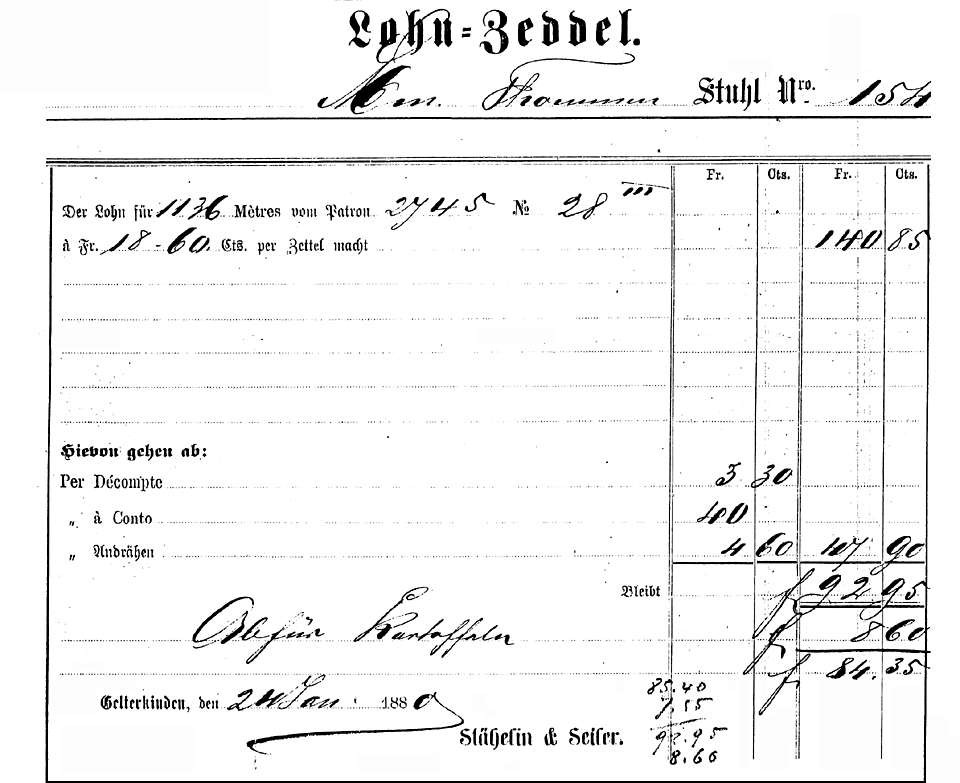 Lohn-Zeddel.
Thommen Stuhl Nro. 154
Fr. Cts. Fr. Cts.
Der Lohn für 1136 Mètres vom Patron 2745 № 28 III
à Fr. 18-60. Cts. per Zettel macht 140 85
Hievon gehen ab:
Per Décompte 3 30
„ à Conto 40
„ Andrähen 4 60 47 90
Bleibt f 92 95
Ab für Kartoffeln f 8 60
f 84.35
85.40
Gelterkinden, den 24 Jan. 1880
7.55
Stähelin & Seiler. 92.95
8.60